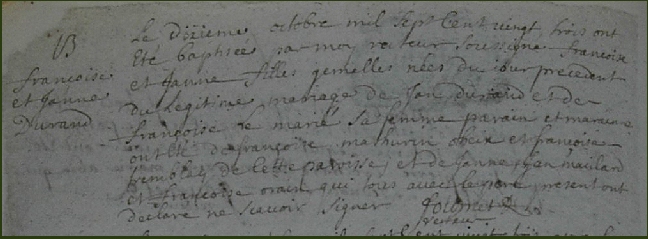 B
françoise
et Janne
Durand
Le dixieme octobre mil sept cent vingt trois ont
Eté baptisées par moy recteur soussigne françoise
et Janne filles gemelles nées du jour precedent
du legitime mariage de Jan durand et de
françoise le marié sa femme parain et maraine
ont été de françoise mathurin et françoise
de cette paroisse, et de Janne, Jan maillard
et françoise orain qui tous avec le pere present ont
declare ne scavoir signer
recteur